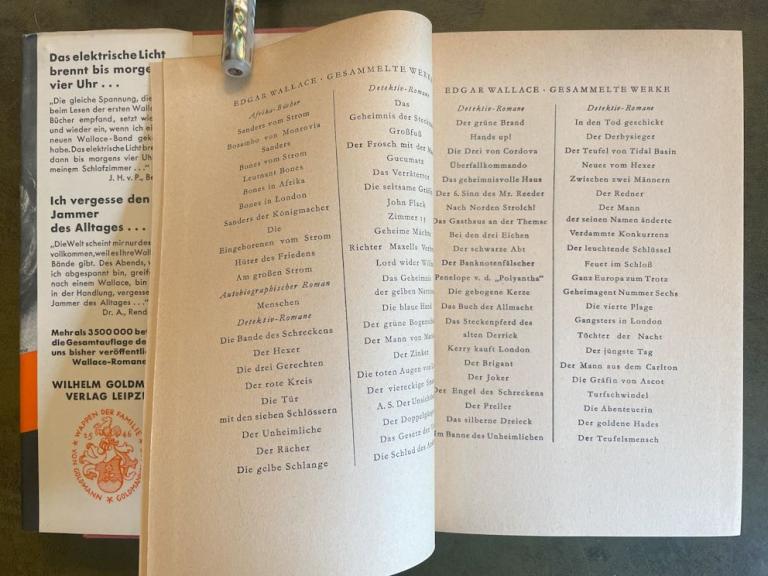 Das elektrische Licht
brennt bis morge
vier Uhr . . .
„Die gleiche Spannung, die
beim Lesen der ersten Walla
Bücher empfand, setzt wie
und wieder ein, wenn ich ei
neuen Wallace-Band gek
habe. Das elektrische Licht bre
dann bis morgens vier Uh
meinem Schlafzimmer . . ."
J. H. v. P., Be
Ich vergesse den
Jammer
des Alltages . . .
„Die Welt scheint mir nur des
vollkommen, weil es Ihre Wall
Bände gibt. Des Abends, w
ich abgespannt bin, greif
nach einem Wallace, bin
in der Handlung, vergesse
Jammer des Alltages . . ."
Dr. A., Rend
Mehr als 3500000 be
die Gesamtauflage de
uns bisher veröffentli
Wallace-Romane
WILHELM GOLDM
VERLAG LEIPZI
WAPPEN DER FAMILIE
VON GOLDMANN
GOLDMANN
1546
EDGAR WALLACE · GESAMMELTE WERK
Afrika-Bücher
Sanders vom Strom
Bosambo von Monrovia
Sanders
Bones vom Strom
Leutnant Bones
Bones in Afrika
Bones in London
Sanders der Königmacher
Die
Eingeborenen vom Strom
Hüter des Friedens
Am großen Strom
Autobiographischer Roman
Menschen
Detektiv-Romane
Die Bande des Schreckens
Der Hexer
Die drei Gerechten
Der rote Kreis
Die Tür
mit den sieben Schlössern
Der Unheimliche
Der Rächer
Die gelbe Schlange
Detektiv-Roman
Das
Geheimnis der Steckn
Großfuß
Der Frosch mit der M
Gucumatz
Das Verräterto
Die seltsame Gräfi
John Flack
Zimmer 13
Geheime Mächte
Richter Maxells Verb
Lord wider Wille
Das Geheimnis
der gelben Narzi
Die blaue Hand
Der grüne Bogensch
Der Mann von Ma
Der Zinker
Die toten Augen von L
Der viereckige Sma
A. S. Der Unsichtb
Der Doppelgäng
Das Gesetz der
Die Schuld des An
EDGAR WALLACE · GESAMMELTE WERKE
Detektiv-Romane
Der grüne Brand
Hands up!
Die Drei von Cordova
Überfallkommando
Das geheimnisvolle Haus
Der 6. Sinn des Mr. Reeder
Nach Norden Strolch!
Das Gasthaus an der Themse
Bei den drei Eichen
Der schwarze Abt
Der Banknotenfälscher
Penelope v. d. „Polyantha"
Die gebogene Kerze
Das Buch der Allmacht
Das Steckenpferd des
alten Derrick
Kerry kauft London
Der Brigant
Der Joker
Der Engel des Schreckens
Der Preller
Das silberne Dreieck
Im Banne des Unheimlichen
Detektiv-Romane
In den Tod geschickt
Der Derbysieger
Der Teufel von Tidal Basin
Neues vom Hexer
Zwischen zwei Männern
Der Redner
Der Mann
der seinen Namen änderte
Verdammte Konkurrenz
Der leuchtende Schlüssel
Feuer im Schloß
Ganz Europa zum Trotz
Geheimagent Nummer Sechs
Die vierte Plage
Gangsters in London
Töchter der Nacht
Der jüngste Tag
Der Mann aus dem Carlton
Die Gräfin von Ascot
Turfschwindel
Die Abenteuerin
Der goldene Hades
Der Teufelsmensch